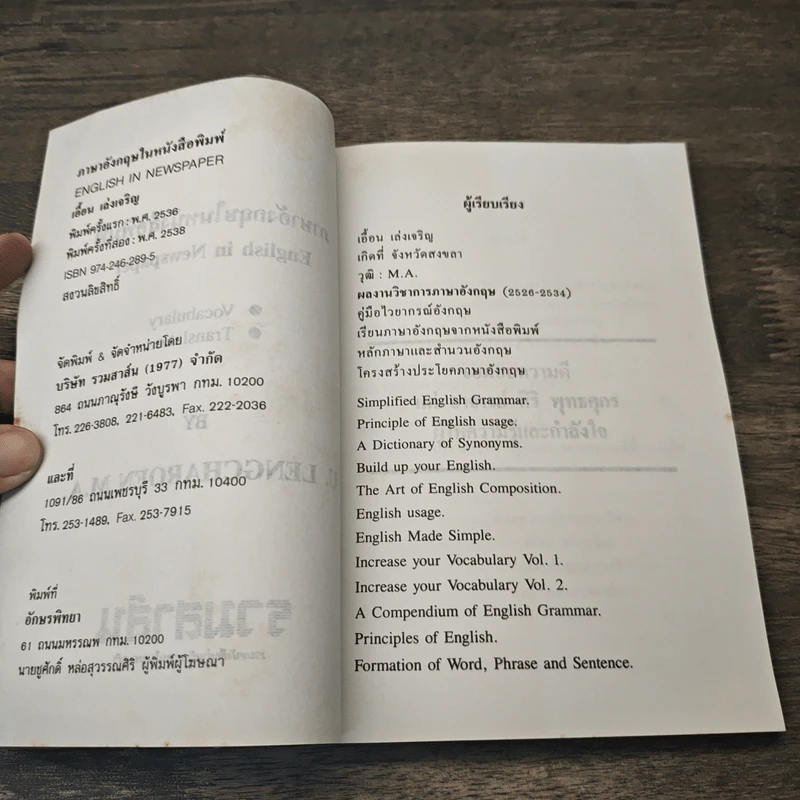 ภาษาอังกฤษในหนังสือพิมพ์
ENGLISH IN NEWSPAPER
เอื้อน เล่งเจริญ
พิมพ์ครั้งแรก : พ.ศ. 2536
พิมพ์ครั้งที่สอง : พ.ศ. 2538
ISBN 974-246-289-5
สงวนลิขสิทธิ์
จัดพิมพ์ & จัดจำหน่ายโดย
บริษัท รวมสาส์น (1977) จำกัด
864 ถนนภาณุรังษี วังบูรพา กทม. 10200
โทร. 226-3808, 221-6483, Fax. 222-2036
และที่
1091/86 ถนนเพชรบุรี 33 กทม. 10400
โทร. 253-1489, Fax. 253-7915
พิมพ์ที่
อักษรพิทยา
61 ถนนมหรรณพ กทม. 10200
นายชูศักดิ์ หล่อสุวรรณศิริ ผู้พิมพ์ผู้โฆษณา
ผู้เรียบเรียง
เอื้อน เล่งเจริญ
เกิดที่ จังหวัดสงขลา
วุฒิ : M.A.
ผลงานวิชาการภาษาอังกฤษ (2526-2534)
คู่มือไวยากรณ์อังกฤษ
เรียนภาษาอังกฤษจากหนังสือพิมพ์
หลักภาษาและสำนวนอังกฤษ
โครงสร้างประโยคภาษาอังกฤษ
Simplified English Grammar.
Principle of English usage.
A Dictionary of Synonyms.
Build up your English.
The Art of English Composition.
English usage.
English Made Simple.
Increase your Vocabulary Vol. 1.
Increase your Vocabulary Vol. 2.
A Compendium of English Grammar.
Principles of English.
Formation of Word, Phrase and Sentence.